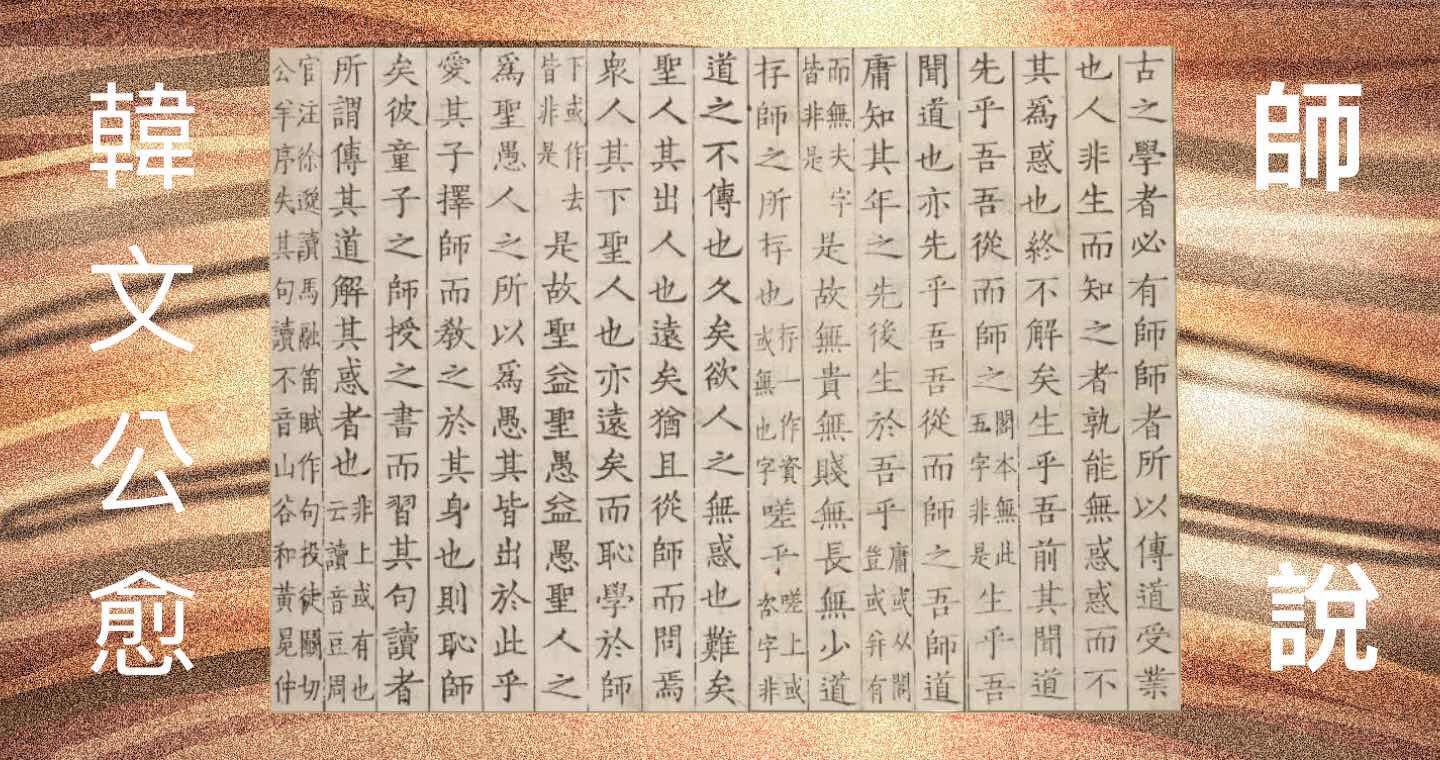 師說
古之學者必有師師者所以傳道受業
也人非生而知之者孰能無惑惑而不
其爲惑也終不解矣生乎吾前其聞道
先乎吾吾從而師之閣本無此五字非是生乎吾
聞道也亦先乎吾吾從而師之吾師道
庸知其年之先後生於吾乎庸或从閣或有
而無夫字皆非是是故無貴無賤無長無少道
存師之所存也存一作資或無也字嗟乎嗟上或字非
道之不傳也久矣欲人之無惑也難矣
聖人其出人也遠矣猶且從師而問焉
衆人其下聖人也亦遠矣而恥學於師
下或作去皆非是是故聖益聖愚益愚聖人之
爲聖愚人之所以爲愚其皆出於此乎
愛其子擇師而教之於其身也則恥師
矣彼童子之師授之書而習其句讀者
所謂傳其道解其惑者也非上或有也云讀音豆周
官注徐邈讀馬融笛賦作句投徒鬭切公羊序失其句讀不音山谷和黃冕仲
韓文公愈